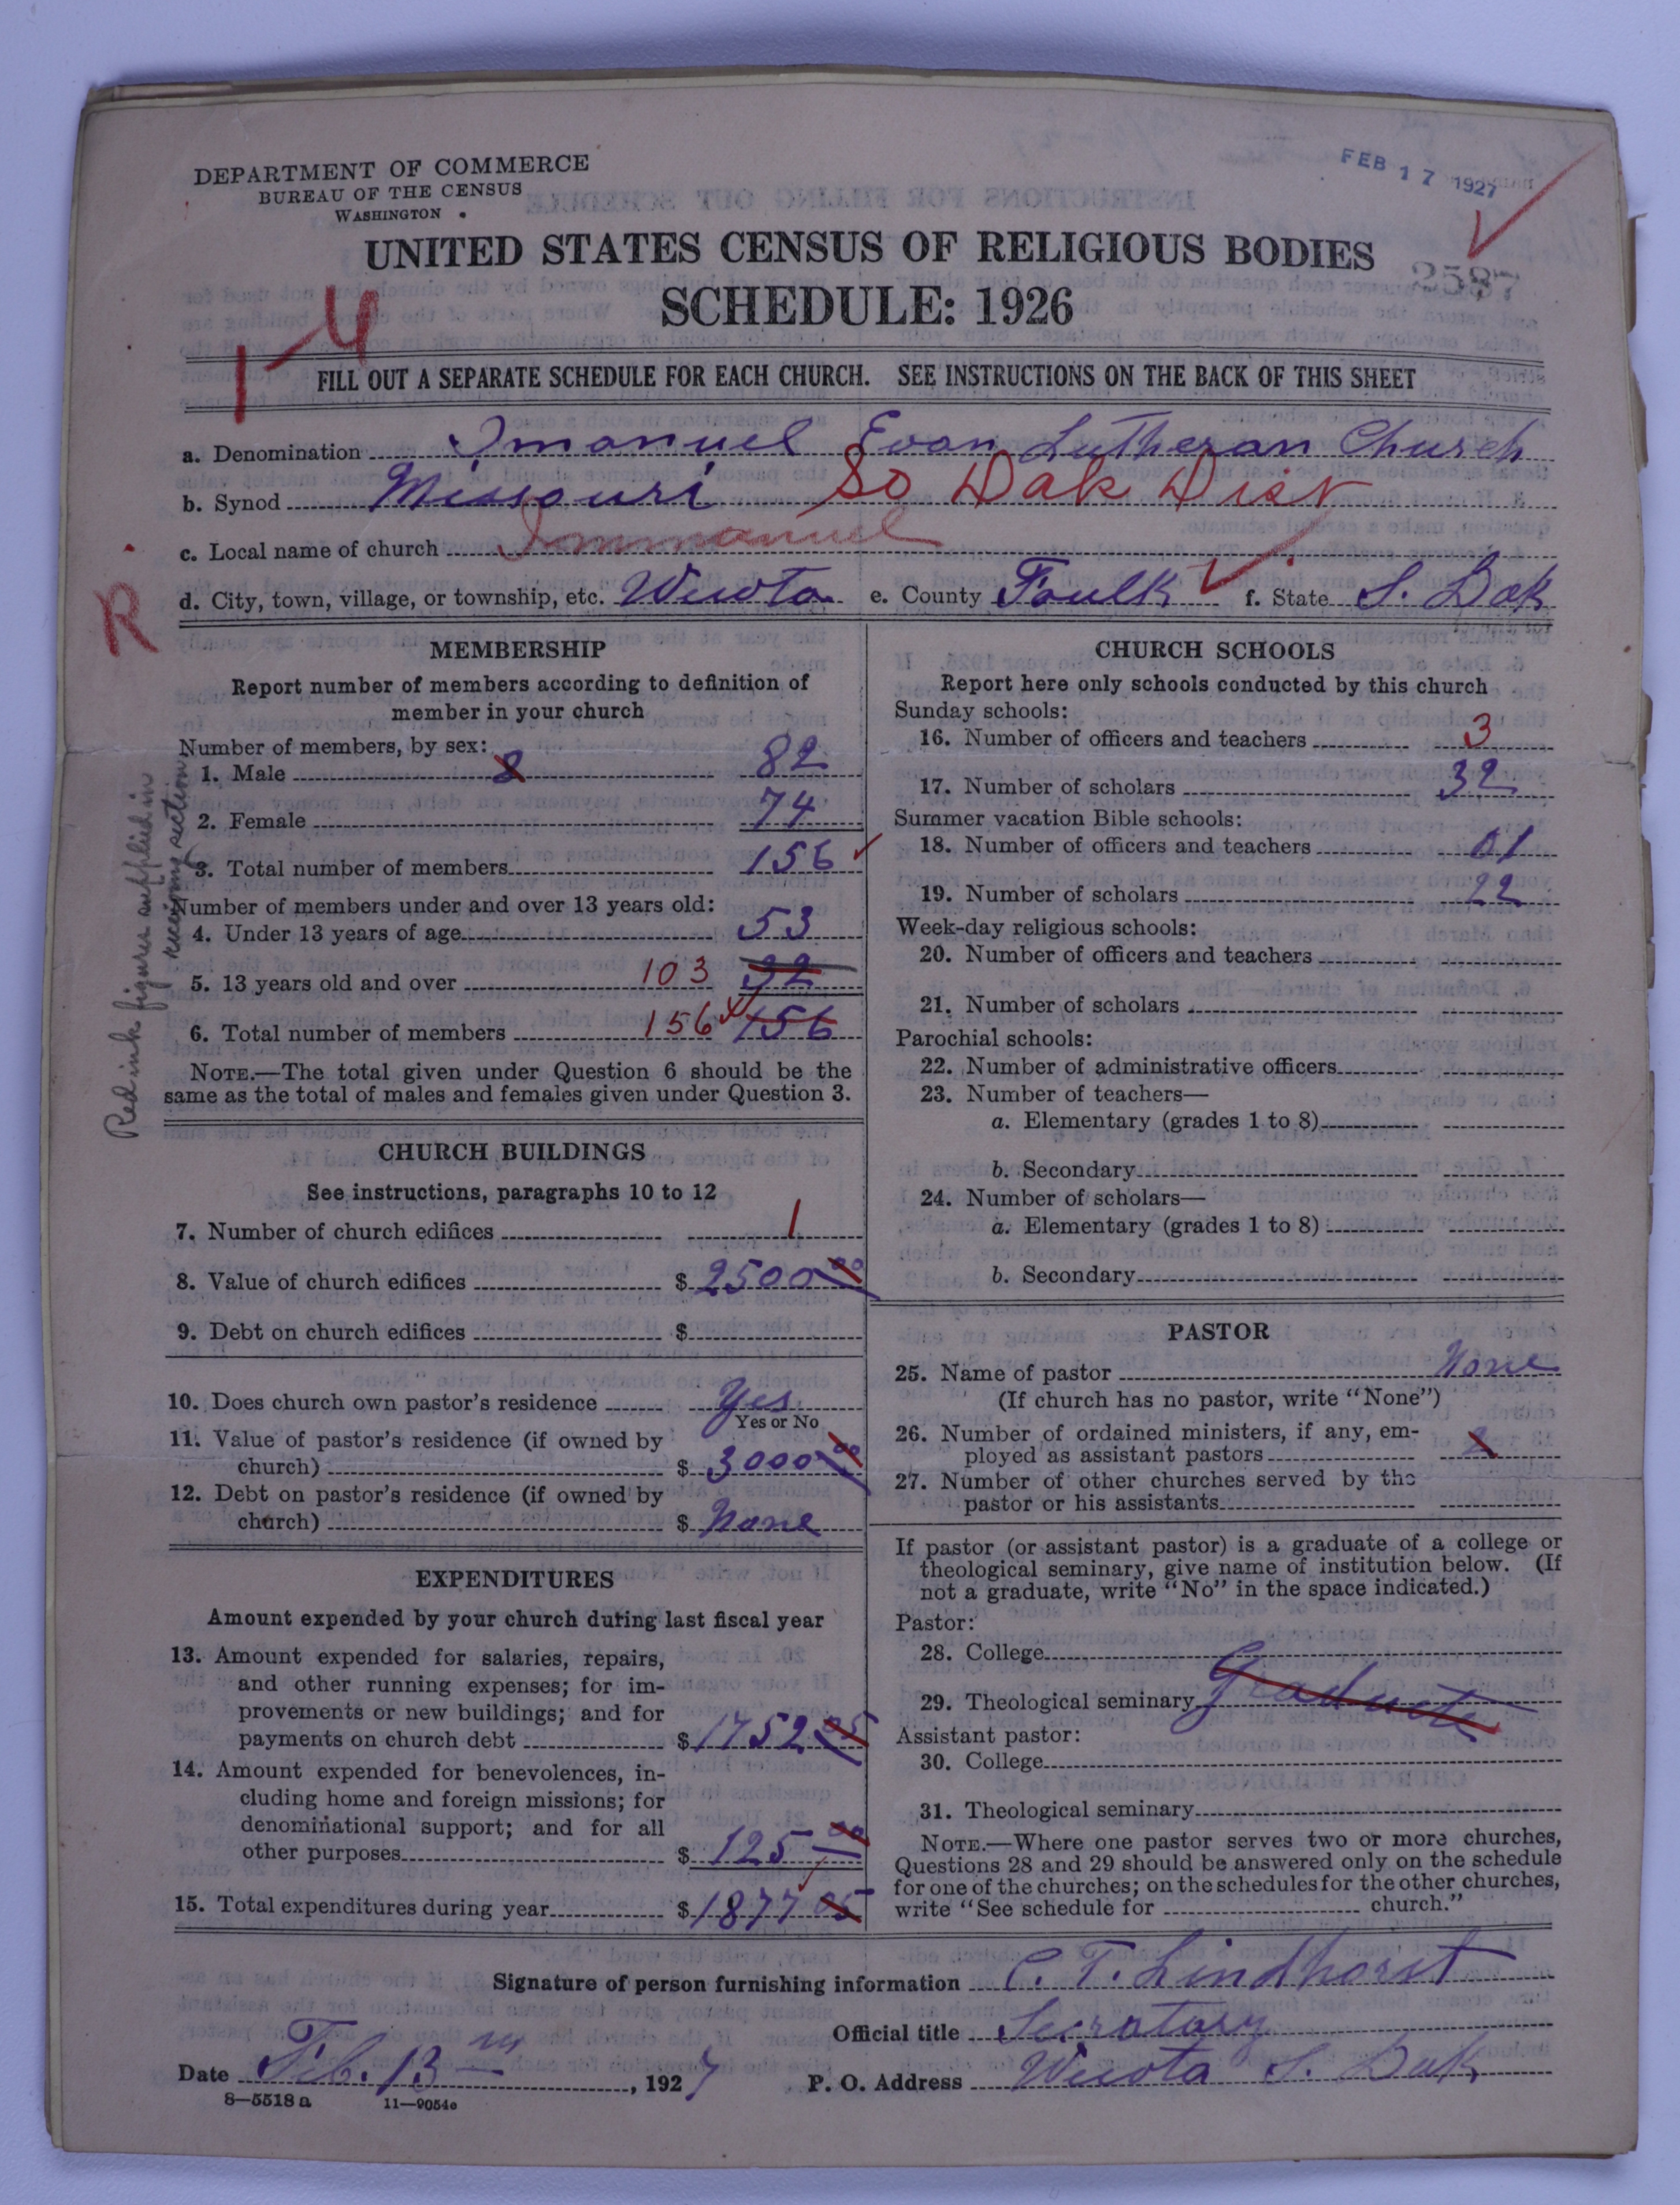 DEPARTMENT OF COMMERCE
BUREAU OF THE CENSUS
WASHINGTON
FEB 17 1927
UNITED STATES CENSUS OF RELIGIOUS BODIES
2587
SCHEDULE: 1926
1-4
FILL OUT A SEPARATE SCHEDULE FOR EACH CHURCH. SEE INSTRUCTIONS ON THE BACK OF THIS SHEET
a. Denomination Imanuel Evan Lutheran Church
b. Synod Missouri So Dak Dist
c. Local name of church Immanuel
d. City, town, village, or township, etc. Wecota e. County Faulk f. State S. Dak
R
Red ink figures supplied in
revising section
MEMBERSHIP
Report number of members according to definition of
member in your church
Number of members, by sex:
1. Male 8 82
2. Female 74
3. Total number of members 156
Number of members under and over 13 years old:
4. Under 13 years of age 53
5. 13 years old and over 103 92
6. Total number of members 156 156
NOTE.—The total given under Question 6 should be the
same as the total of males and females given under Question 3.
CHURCH BUILDINGS
See instructions, paragraphs 10 to 12
7. Number of church edifices 1
8. Value of church edifices $ 2500 00
9. Debt on church edifices $
10. Does church own pastor's residence Yes
Yes or No
11. Value of pastor's residence (if owned by
church) $ 3000 00
12. Debt on pastor's residence (if owned by
church) $ None
EXPENDITURES
Amount expended by your church during last fiscal year
13. Amount expended for salaries, repairs,
and other running expenses; for im-
provements or new buildings; and for
payments on church debt $ 1752 05
14. Amount expended for benevolences, in-
cluding home and foreign missions; for
denominational support; and for all
other purposes $ 125 00
15. Total expenditures during year $ 1877 05
CHURCH SCHOOLS
Report here only schools conducted by this church
Sunday schools:
16. Number of officers and teachers 3
17. Number of scholars 32
Summer vacation Bible schools:
18. Number of officers and teachers 01
19. Number of scholars 22
Week-day religious schools:
20. Number of officers and teachers
21. Number of scholars
Parochial schools:
22. Number of administrative officers
23. Number of teachers—
a. Elementary (grades 1 to 8)
b. Secondary
24. Number of scholars—
a. Elementary (grades 1 to 8)
b. Secondary
PASTOR
25. Name of pastor None
(If church has no pastor, write "None")
26. Number of ordained ministers, if any, em-
ployed as assistant pastors
27. Number of other churches served by the
pastor or his assistants
If pastor (or assistant pastor) is a graduate of a college or
theological seminary, give name of institution below. (If
not a graduate, write "No" in the space indicated.)
Pastor:
28. College
29. Theological seminary Graduate
Assistant pastor:
30. College
31. Theological seminary
NOTE.—Where one pastor serves two or more churches,
Questions 28 and 29 should be answered only on the schedule
for one of the churches; on the schedules for the other churches,
write "See schedule for church."
Signature of person furnishing information C. T. Lindhorst
Official title Secratary
Date Feb. 13 , 1927 P. O. Address Wecota S. Dak
8—5518 a 11—9054e